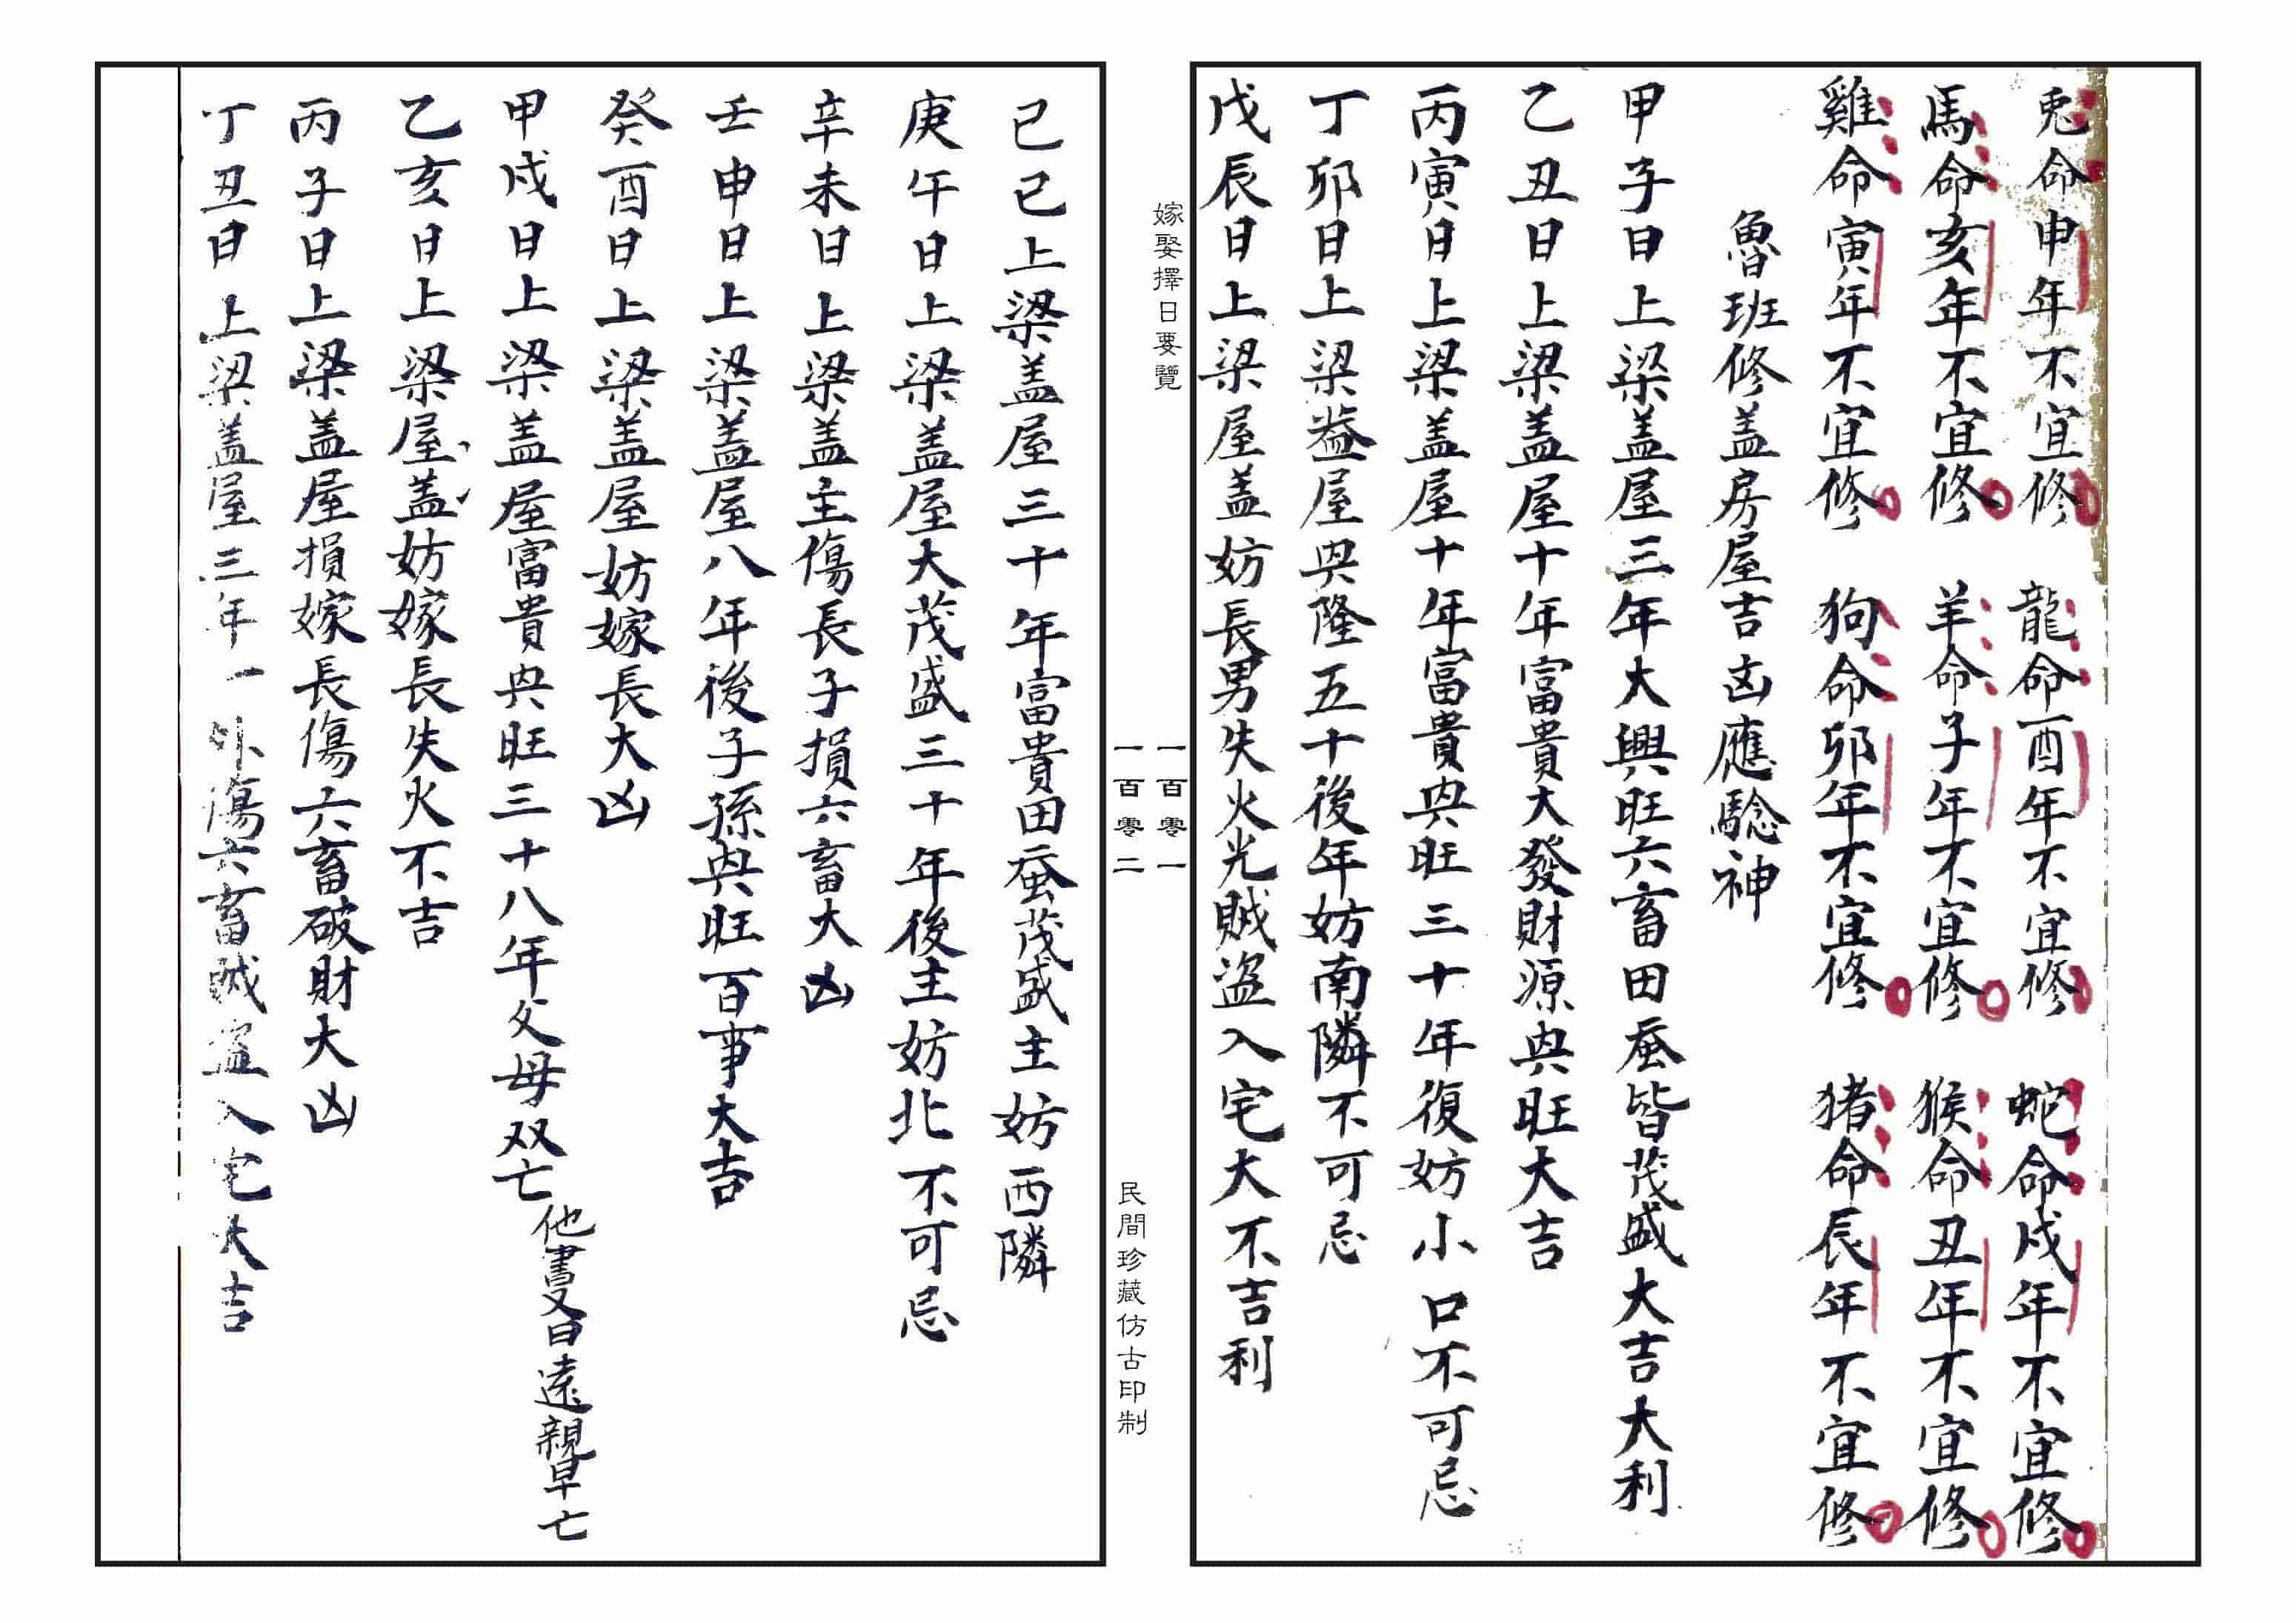 兎命申年不宜修 龍命酉年不宜修 蛇命戌年不宜修
馬命亥年不宜修 羊命子年不宜修 猴命丑年不宜修
雞命寅年不宜修 狗命卯年不宜修 猪命辰年不宜修
魯班修盖房屋吉凶應騐神
甲子日上梁盖屋三年大興旺六畜田蚕皆茂盛大吉大利
乙丑日上梁盖屋十年富貴大發財源㒷旺大吉
丙寅日上梁盖屋十年富貴㒷旺三十年復妨小口不可忌
丁卯日上梁盖屋㒷隆五十後年妨南隣不可忌
戊辰日上梁屋盖妨長男失火光賊盗入宅大不吉利
嫁娶擇日要覽
一百零一
一百零二
民間珍藏仿古印制
己巳上梁盖屋三十年富貴田蚕茂盛主妨西隣
庚午日上梁盖屋大茂盛三十年後主妨北不可忌
辛未日上梁盖主傷長子損六畜大凶
壬申日上梁盖屋八年後子孫㒷旺百事大吉
癸酉日上梁盖屋妨嫁長大凶
甲戌日上梁盖屋富貴㒷旺三十八年父母双亡他書又曰遠親早亡
乙亥日上梁屋盖妨嫁長失火不吉
丙子日上梁盖屋損嫁長傷六畜破財大凶
丁丑日上梁盖屋三年一 傷六畜賊盗入宅大吉